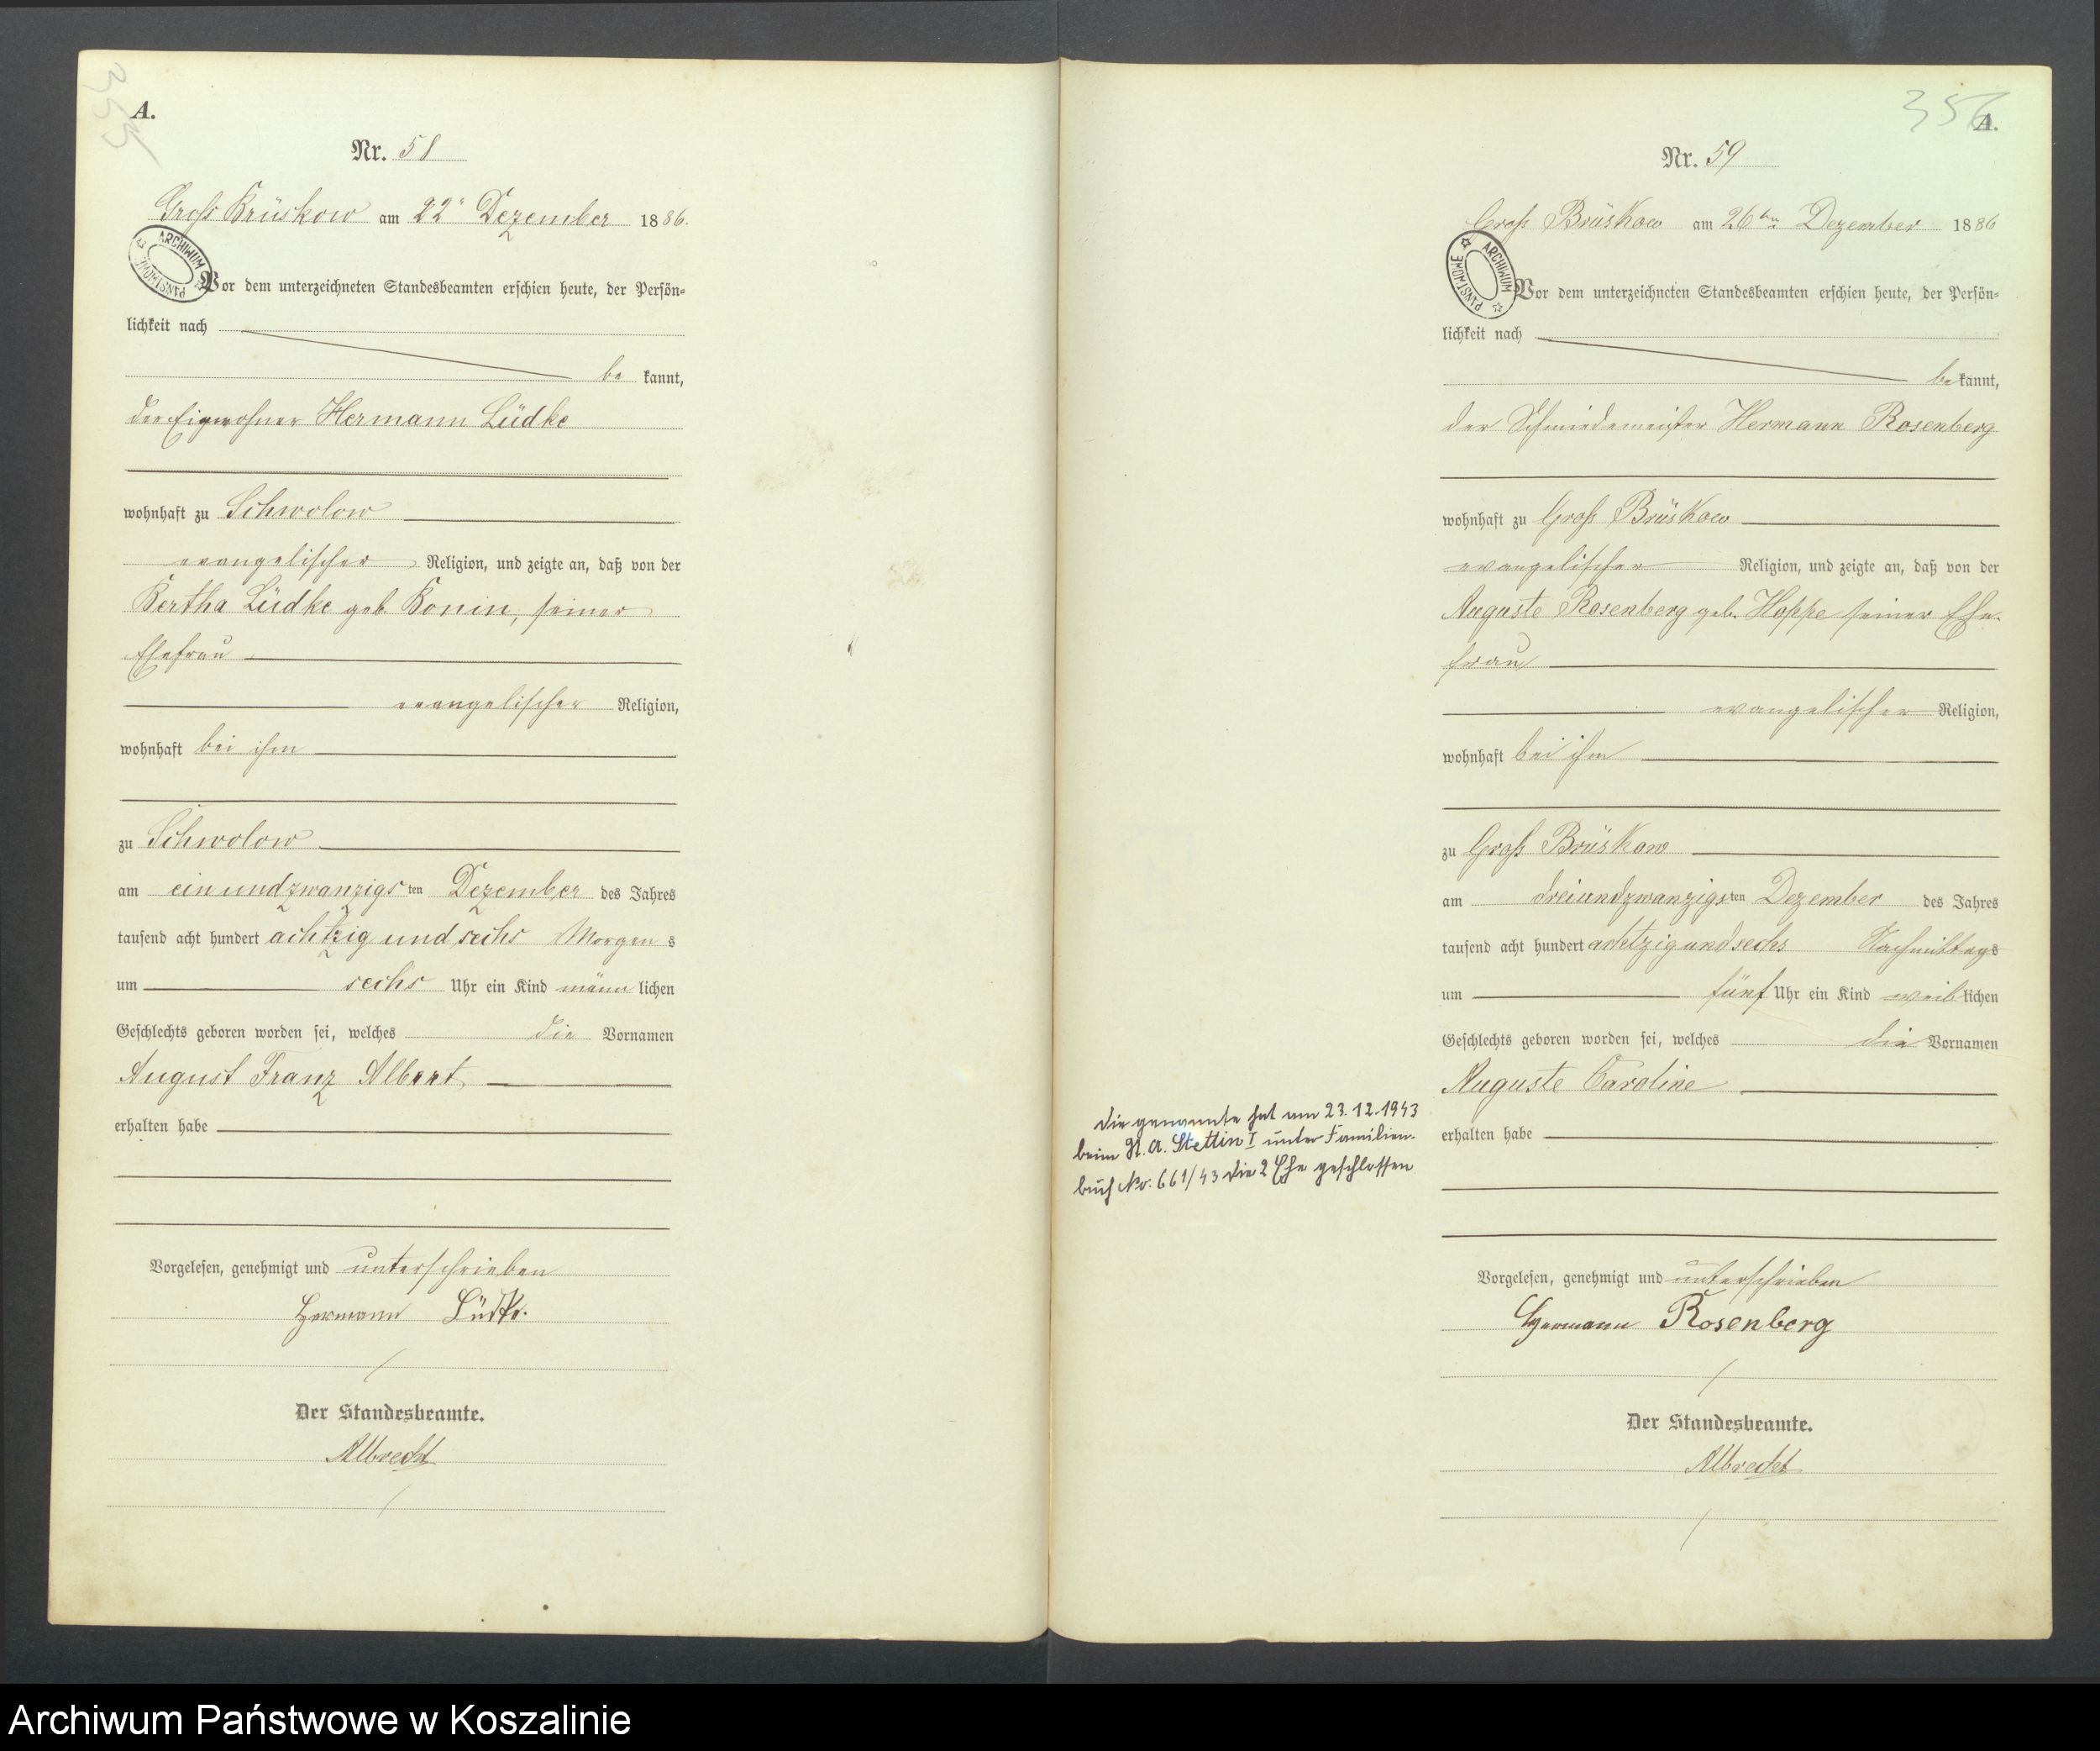 355
A.
Nr. 58
Groß Brüskow am 22n Dezember 1886.
ARCHIWUM PAŃSTWOWE
Vor dem unterzeichneten Standesbeamten erschien heute, der Persön-
lichkeit nach
be kannt,
der Eigenwohner Hermann Lüdke
wohnhaft zu Schwolow
evangelischer Religion, und zeigte an, daß von der
Bertha Lüdke geb. Konin, seiner
Ehefrau
evangelischer Religion,
wohnhaft bei ihm
zu Schwolow
am ein und zwanzigsten Dezember des Jahres
tausend acht hundert achtzig und sechs Morgens
um sechs Uhr ein Kind männlichen
Geschlechts geboren worden sei, welches die Vornamen
August Franz Albert
erhalten habe
Vorgelesen, genehmigt und unterschrieben
Hermann Lüdke.
Der Standesbeamte.
Albrecht
356
A.
Nr. 59
Groß Brüskow am 26ten Dezember 1886
ARCHIWUM PAŃSTWOWE
Vor dem unterzeichneten Standesbeamten erschien heute, der Persön-
lichkeit nach
bekannt,
der Schmiedemeister Hermann Rosenberg
wohnhaft zu Groß Brüskow
evangelischer Religion, und zeigte an, daß von der
Auguste Rosenberg geb. Hoppe seiner Ehe-
frau
evangelischer Religion,
wohnhaft bei ihm
zu Groß Brüskow
am dreiundzwanzigsten Dezember des Jahres
tausend acht hundert achtzig und sechs Nachmittags
um fünf Uhr ein Kind weiblichen
Geschlechts geboren worden sei, welches die Vornamen
Auguste Caroline
erhalten habe
die genannte hat am 23.12.1943
beim St. A. Stettin I unter Familien-
buch No. 661/43 die 2 Ehe geschlossen
Vorgelesen, genehmigt und unterschrieben
Hermann Rosenberg
Der Standesbeamte.
Albrecht
Archiwum Państwowe w Koszalinie